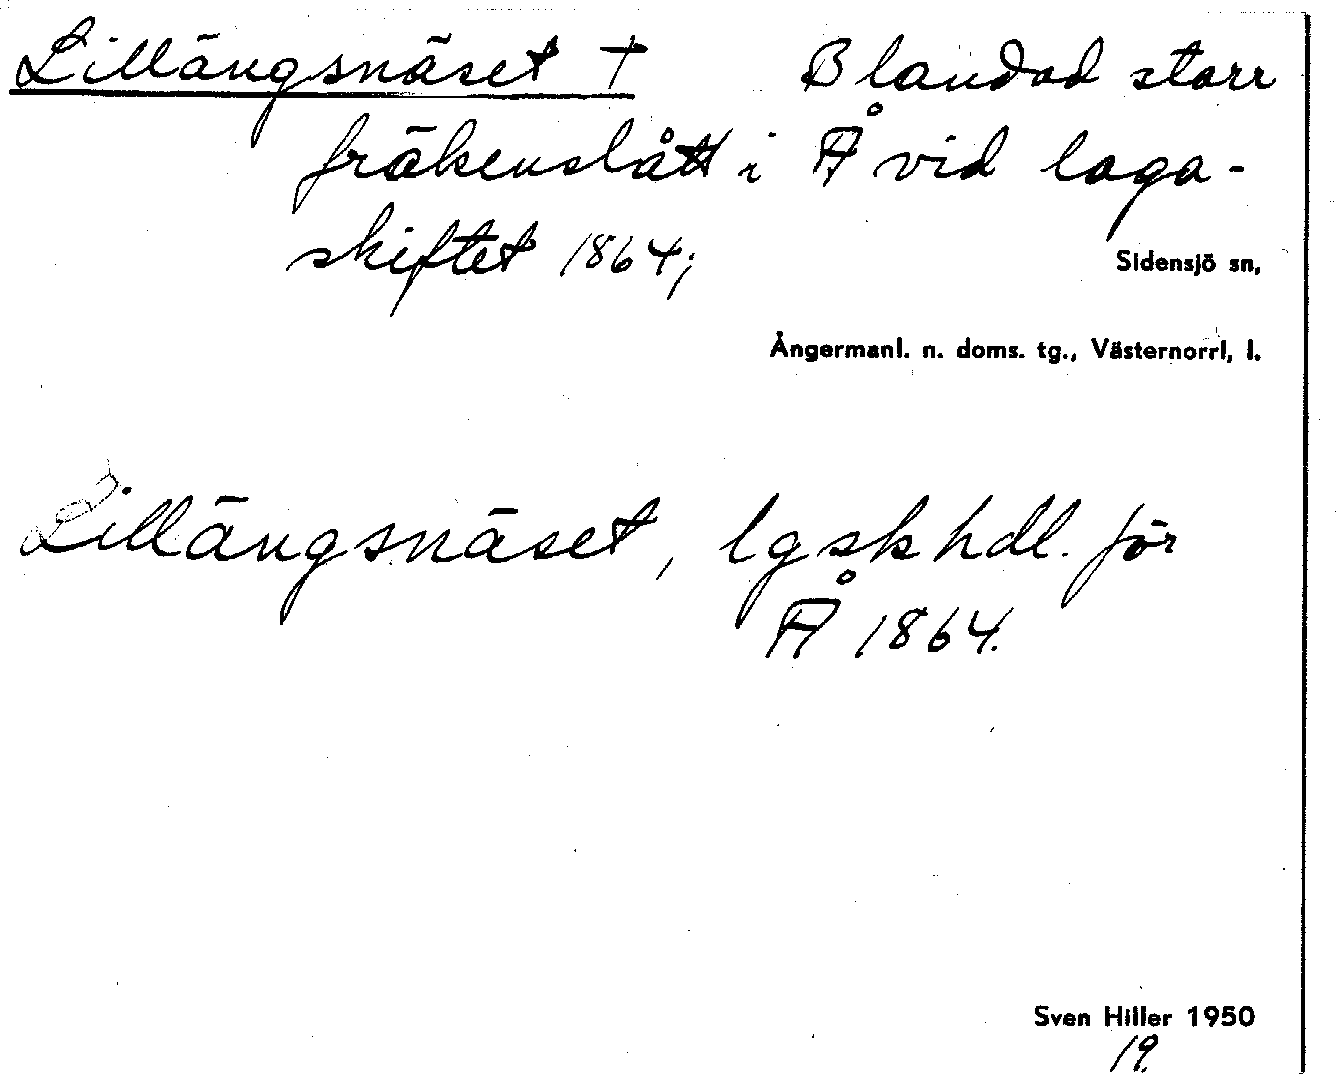 Lillängsnäset † Blandad starr
fräkenslått i Å vid laga-
skiftet 1864;
Sidensjö sn,
Ångermanl. n. doms. tg., Västernorrl, l.
Lillängsnäset, lgskhdl. för
Å 1864.
Sven Hiller 1950
19.